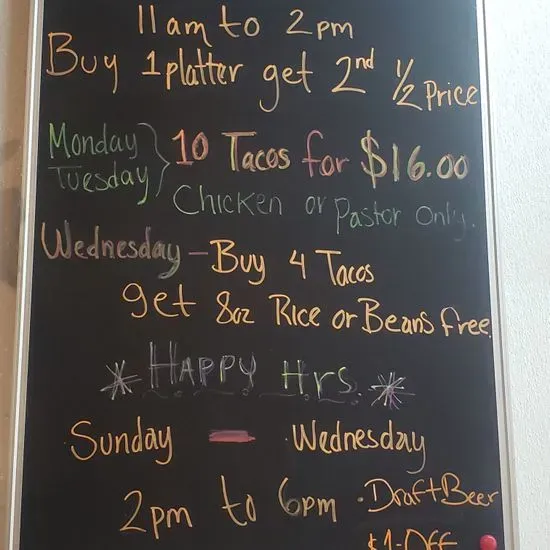 11am to 2pm
Buy 1 platter get 2nd 1/2 Price
Monday
Tuesday } 10 Tacos for $16.00
Chicken or Pastor Only.
Wednesday - Buy 4 Tacos
get 8oz Rice or Beans free
* HAPPY Hrs. *
Sunday - Wednesday
2pm to 6pm · Draft Beer
$1-Off